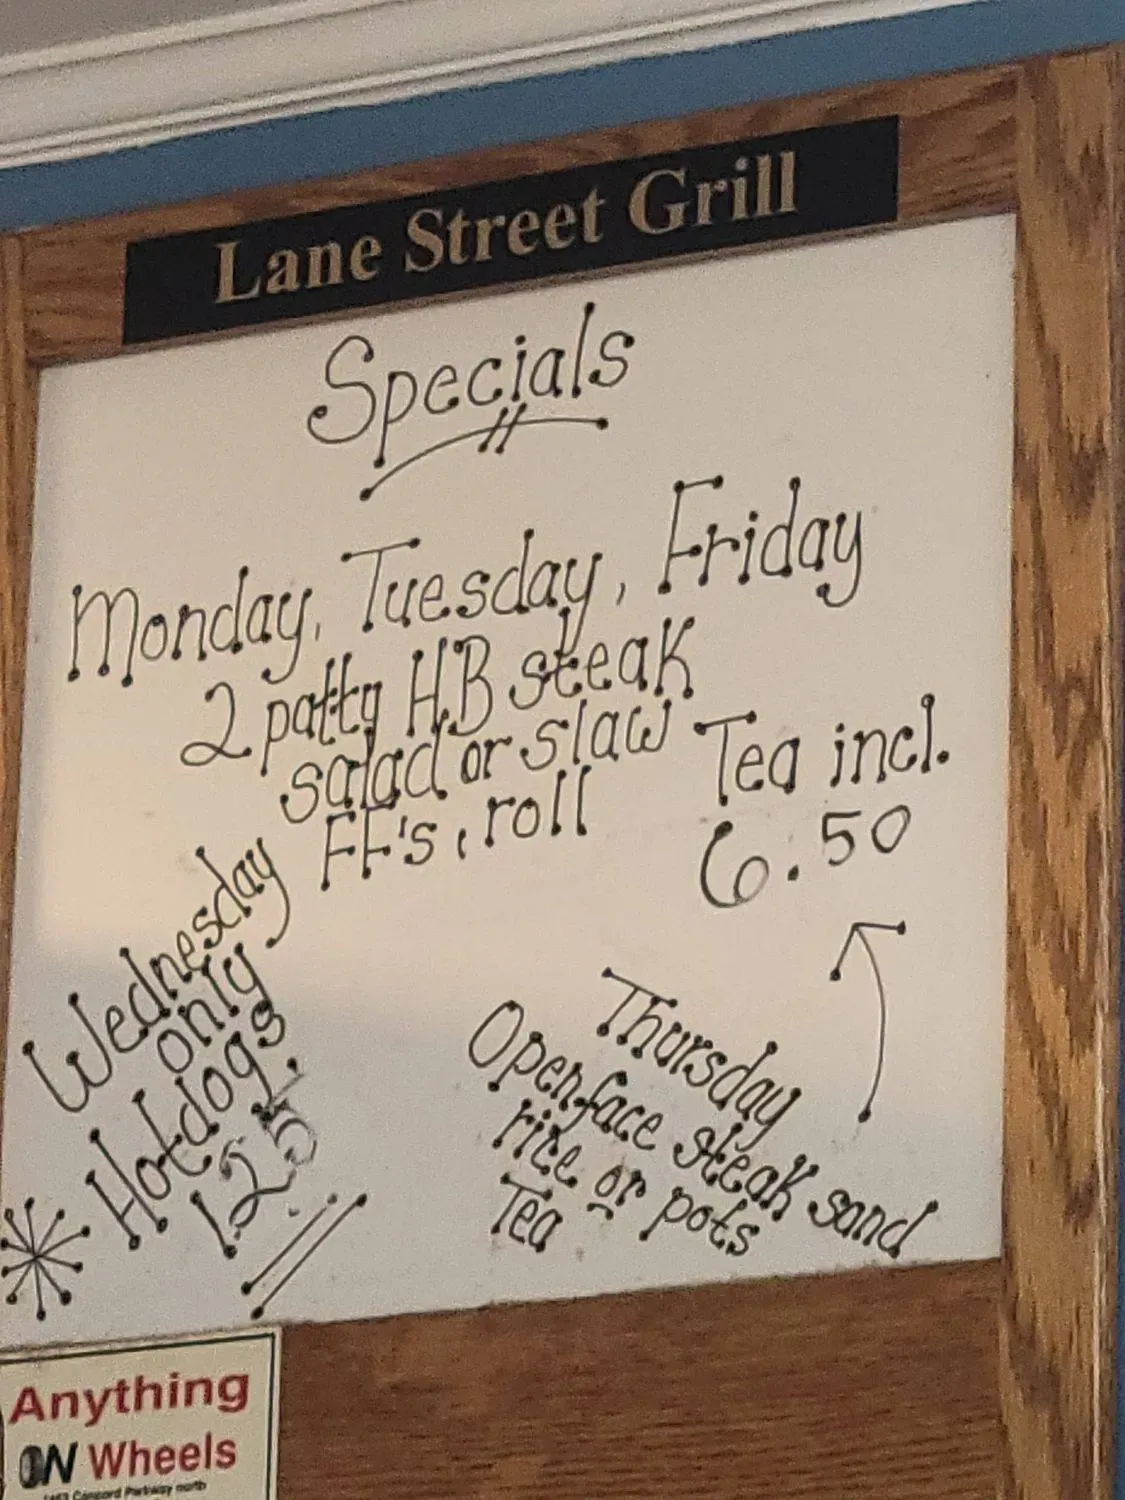 Lane Street Grill
Specials
Monday, Tuesday, Friday
2 patty HB steak
salad or slaw
FF's, roll
Tea incl.
6.50
Wednesday
only
Hotdogs
1.25
Thursday
Openface steak sand
rice or pots
Tea
Anything
ON Wheels
Concord Parkway north